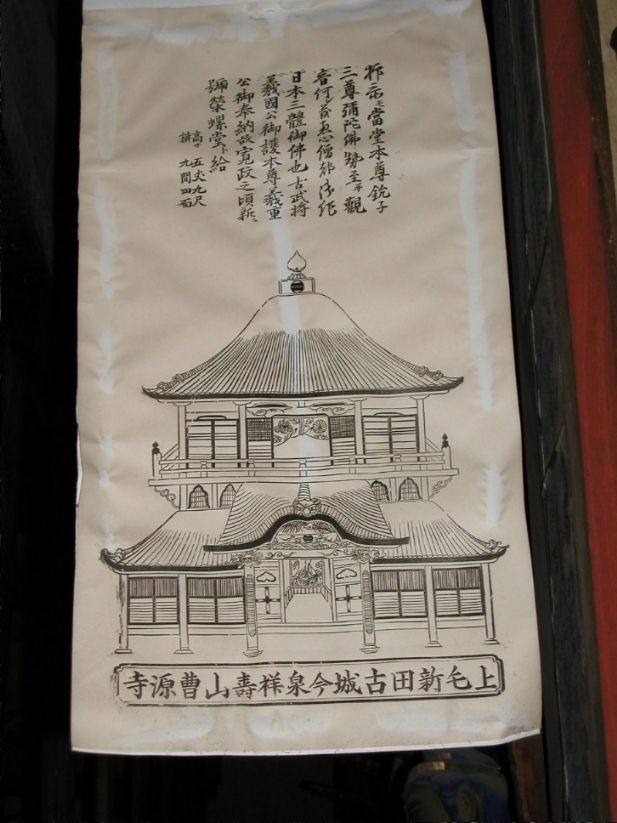 當堂本尊
三尊彌陀佛勢至并觀
音何レ茂惠心僧都御作
日本三體御佛也古武将
義國公御護本尊義重
公御奉納故寛政之頃新ニ
號榮螺堂ト給
高サ五丈九尺
横九間四面
上毛新田古城今泉祥壽山曹源寺